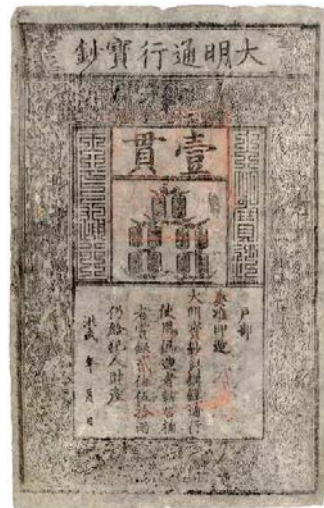 大明通行寶鈔
壹貫
大明寶鈔
户部
奏准印造
大明寶鈔與銅錢通行
使用偽造者斬告捕
者賞銀貳伯伍拾兩
仍給犯人財產
洪武 年 月 日